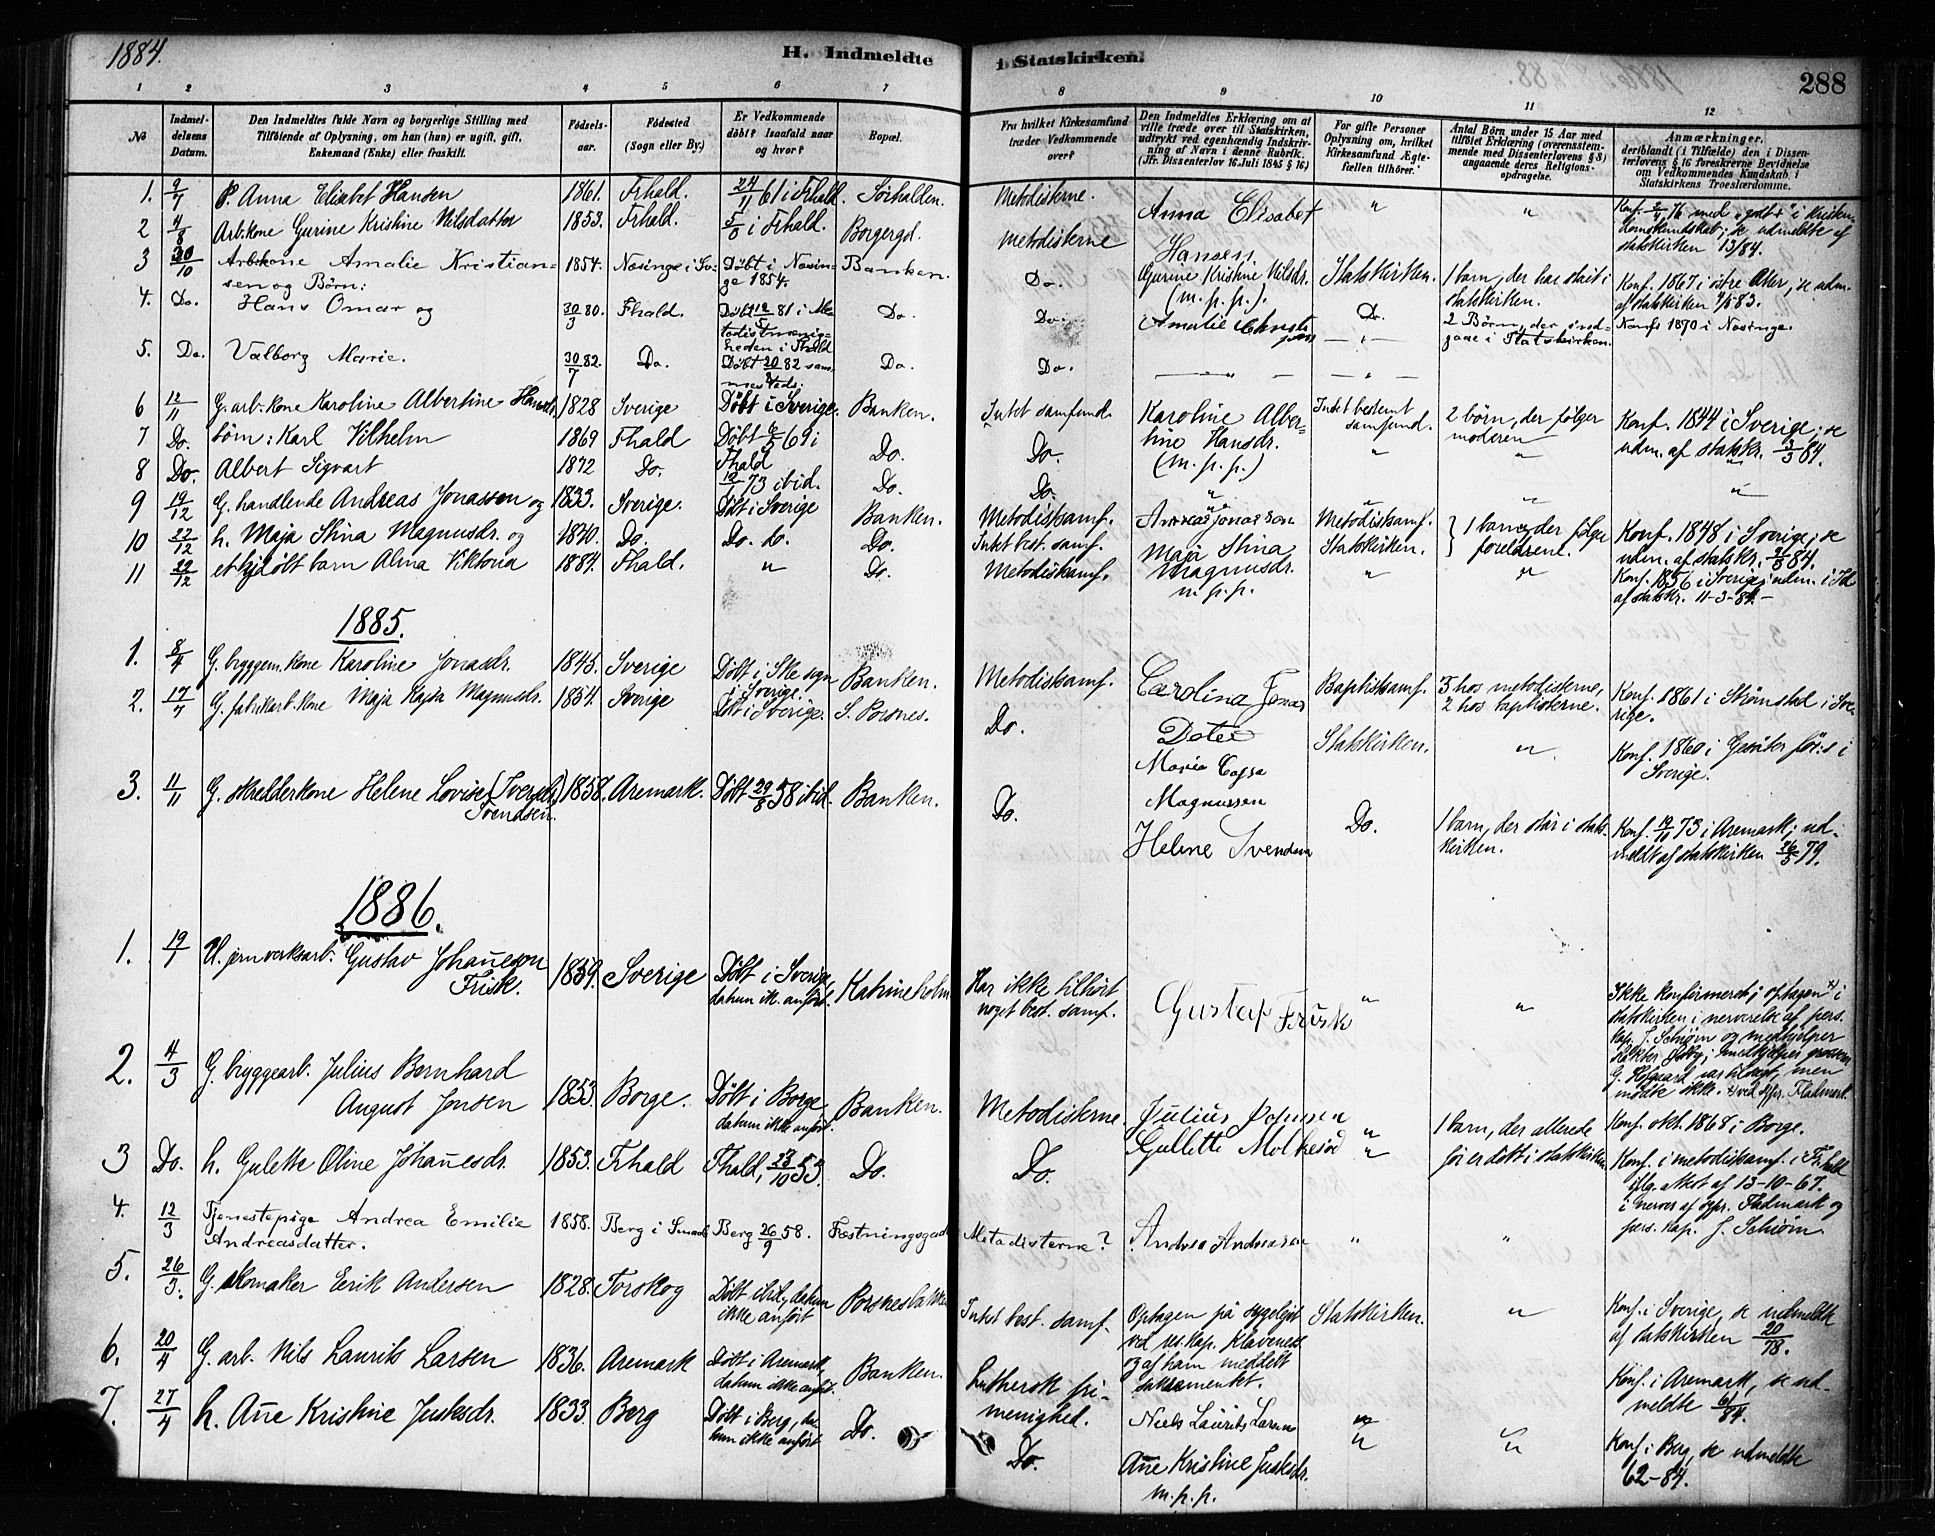 1884.
H. Indmeldte
i Statskirken.
288
1 2 3 4 5 6 7 8 9 10 11 12
No
Indmel-
delsens
Datum.
Den Indmeldtes fulde Navn og borgerlige Stilling med
Tilføiende af Oplysning, om han (hun) er ugift, gift,
Enkemand (Enke) eller fraskilt.
Fødsels-
aar.
Fødested
(Sogn eller By.)
Er Vedkommende
døbt? Isaafald naar
og hvor?
Bopæl.
Fra hvilket Kirkesamfund
træder Vedkommende
over?
Den Indmeldtes Erklæring om at
ville træde over til Statskirken,
udtrykt ved egenhændig Indskriv-
ning af Navn i denne Rubrik.
(Jfr. Dissenterlov 16 Juli 1845 § 16)
For gifte Personer
Oplysning om, hvilket
Kirkesamfund Ægte-
fællen tilhører.
Antal Børn under 15 Aar med
tilføiet Erklæring (overensstem-
mende med Dissenterlovens § 8)
angaaende deres Religions-
opdragelse.
Anmærkninger.
deriblandt (i Tilfælde) den i Dissen-
terlovens § 16 foreskrevne Bevidnelse
om Vedkommendes Kundskab i
Statskirkens Troeslærdomme.
1. 9/7 P. Anna Elisabet Hansen 1861. Frhald. 24/11 61 i Frhald. Sørhalden. Metodisterne. Anna Elisabet Hansen. " "
Konf. 2/4 76 med "godt+" i kristen-
domskundskab; se udmeldte af
statskirken 13/84.
2 4/8 Arb.kone Gurine Kristine Nilsdatter 1853. Frhald. i Frhald. Borgergd. Metodisterne Gurine Kristine Nilsdr. (m. p. p.). Statskirken. 1 barn, der har staat i
statskirken.
Konf. 1867 i østre Aker, se udm.
af statskirken 83.
3 30/10 Arb.kone Amalie Kristian-
sen og Børn: 1854. Næsinge i Sv. Døbt i Næsin-
ge 1854. Banken. Do. Amalie Do. 2 Børn, der ind-
gaar i Statskirken. Konf. 1870 i Næsinge.
4. Do. Hans Omar og 30/3 80. Fhald. Døbt 81 i Me-
todistmenig-
heden i Fhald Do. Do.
5. Do. Valborg Marie. 30/7 82. Do. Døbt 82 sam-
mesteds. Do. Do. — " — — " —
6 12/11 G. arb.kone Karoline Albertine Hansdr. 1828 Sverige Døbt i Sverige. Banken. Intet samfund. Karoline Alber-
tine Hansdr.
(m. p. p.) Intet bestemt
samfund. 2 børn, der følger
moderen Konf. 1844 i Sverige; se
udm. af statskr. 3/3 84.
7 Do. børn: Karl Vilhelm 1869 Fhald Døbt 69 i
Fhald Do. Do. " "
8 Do. Albert Sigvart 1872 Do. 73 ibid. Do. Do. " "
9 19/12 G. handlende Andreas Jonasson og 1833. Sverige. Døbt i Sverige Banken. Metodistsamf. Andreas Jonasson Metodistsamf. 1 barn, der følger
foreldrene. Konf. 1848 i Sverige; se
udm. af statskr. 84.
10 22/12 h. Maja Stina Magnusdr. og 1840. Do. Do. do. Do. Intet best. samf. Maja Stina
Magnusdr.
m. p. p. Statskirken.
Konf. 1856 i Sverige; udm. i
af statskr. 11-3-84.
11 22/12 et hjdøbt barn Alma Viktoria 1884. Fhald. " Do. Metodistsamf. " "
1885.
1. 8/4 G. bryggem.kone Karoline Jonasdr. 1845. Sverige Døbt i Ske sogn
i Sverige. Banken. Metodistsamf. Carolina Jonas
Doter Baptistsamf. 3 hos metodisterne,
2 hos baptisterne. Konf. 1861 i Strømstad i Sve-
rige.
2. 17/7 G. fabrikarb.kone Maja Kajsa Magnusdr. 1854. Sverige Døbt i Sverige. S. Porsnes. Do. Maria Cajsa
Magnussen Statskirken. " Konf. 1860 i
Sverige.
3. 11/11 G. skrædderkone Helene Lovise (Svensdr.)
Svendsen. 1858. Aremark. Døbt 29/8 58 ibid. Banken. Do. Helene Svendsen Do. 1 barn, der står i stats-
kirken. Konf. 19/10 73 i Aremark; ud-
meldt af statskirken 26/5 79.
1886.
1. 19/1 U. jernverksarb. Gustav Johanneson
Frisk. 1859. Sverige Døbt i Sverige,
datum ik. anført. Katrineholm Har ikke tilhørt
noget best. samf. Gustaf Frisk " "
Ikke konfirmeret; optagen x) i
statskirken i nerverelse af pers.
kap. J. Schiøin og medhjelper
G. Hofgaard var tilsagt, men
mødte ikke. x) ved Fladmark.
2. 4/3 G. bryggearb. Julius Bernhard
August Jensen 1853. Borge. Døbt i Borge,
datum ikke anført. Banken. Metodisterne. Julius Johnsen " 1 barn, der allerede
før er døbt i statskirken Konf. okt. 1868 i Borge.
3 Do. h. Gulette Oline Johannesdr. 1853. Frhald Fhald, 23/10 53. Do. Do. Gullette "
Konf. i metodistsamf. i Fr.hald
iflg. attest af 13-10-67.
i nerver. af Fladmark og
pers. kap. J. Schiøin
4. 12/3 Tjenestepige Andrea Emilie
Andreasdatter. 1858. Berg i Smaal. Berg 26/9 58. Fæstningsgad. Metodisterne? Andrea Andreasen " "
5. 26/3. G. skomaker Eerik Andersen 1828. Torskog Døbt ibid, datum
ikke anført Porsnesbakken Intet best. samf. Optagen på sygeleiet
ved res. kap. Klaveness
og af ham meddelt
sakramentet. Statskirken. " Konf. i Sverige, se udmeldte
af statskirken 20/78.
6. 20/4 G. arb. Nils Laurits Larsen 1836. Aremark Døbt i Aremark,
datum ikke anført. Banken. Luthersk fri-
menighed. Niels Laurits Larsen " " Konf. i Aremark, se ud-
meldte 61/84.
7. 27/4 h. Ane Kristine Justesdr. 1833. Berg Døbt i Berg, da-
tum ikke anført Do. Do. Ane Kristine Justesdr.
m. p. p. " " Konf. i Berg, se udmeldte
62-84.